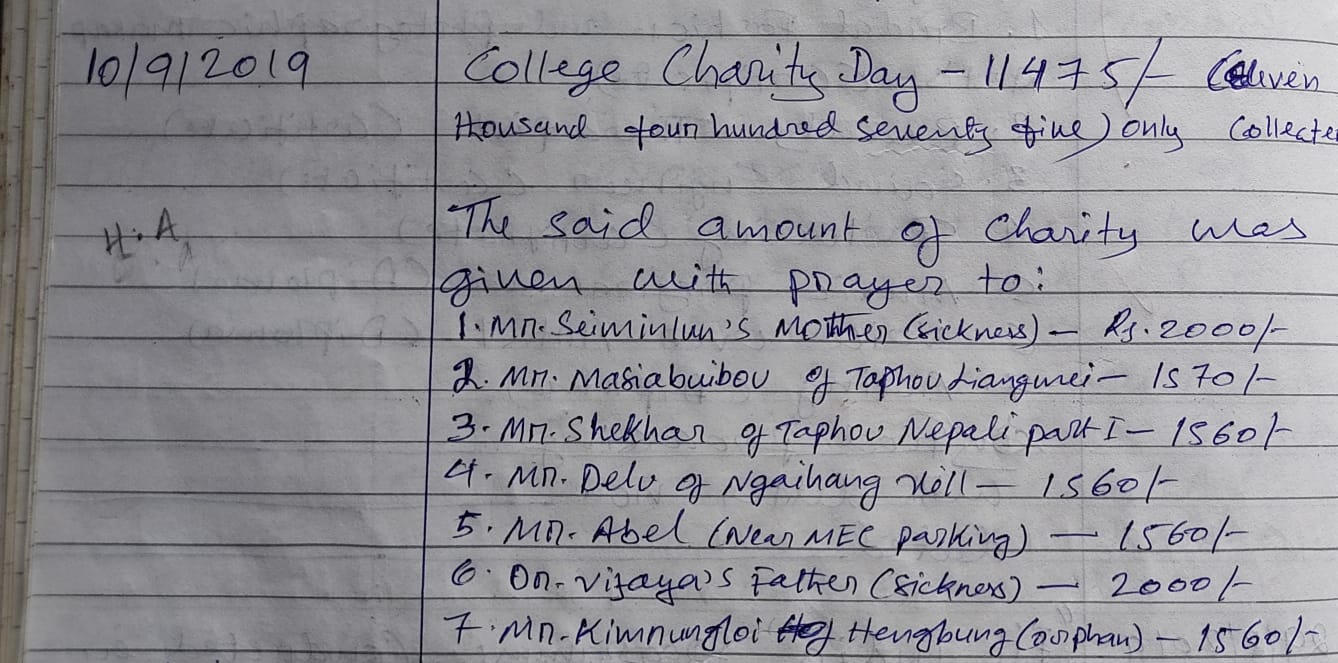 10/9/2019 College Charity Day - 11475/- (Eleven
thousand four hundred seventy five) only Collected
H.A The said amount of Charity was
given with prayer to:
1. Mr. Seiminlun's Mother (sickness) - Rs. 2000/-
2. Mr. Masiabuibou of Taphou Liangmei - 1570/-
3. Mr. Shekhar of Taphou Nepali part I - 1560/-
4. Mr. Delu of Ngaihang Hill - 1560/-
5. Mr. Abel (Near MEC parking) - 1560/-
6. Dr. Vijaya's Father (Sickness) - 2000/-
7. Mr. Kimnungloi of Hengbung (orphan) - 1560/-